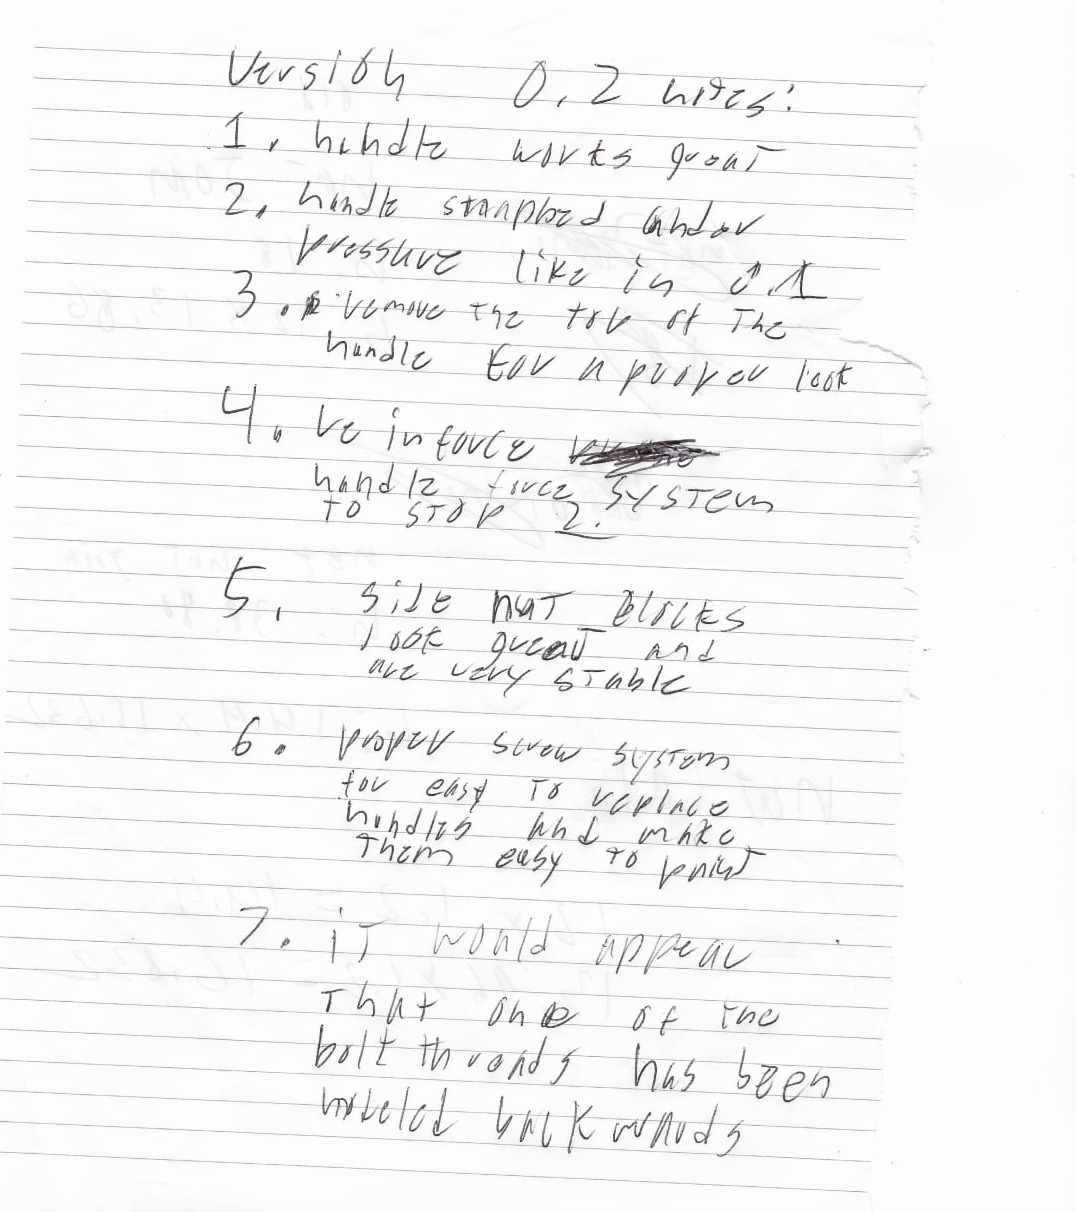 Version 0.2 notes:
1. handle works great
2. handle snapped under
pressure like in 0.1
3. remove the top of the
handle for a proper look
4. reinforce
handle force system
to stop 2.
5. side nut blocks
look great and
are very stable
6. proper screw system
for easy to replace
handles and make
them easy to print
7. it would appear
that one of the
bolt threads has been
modeled backwards